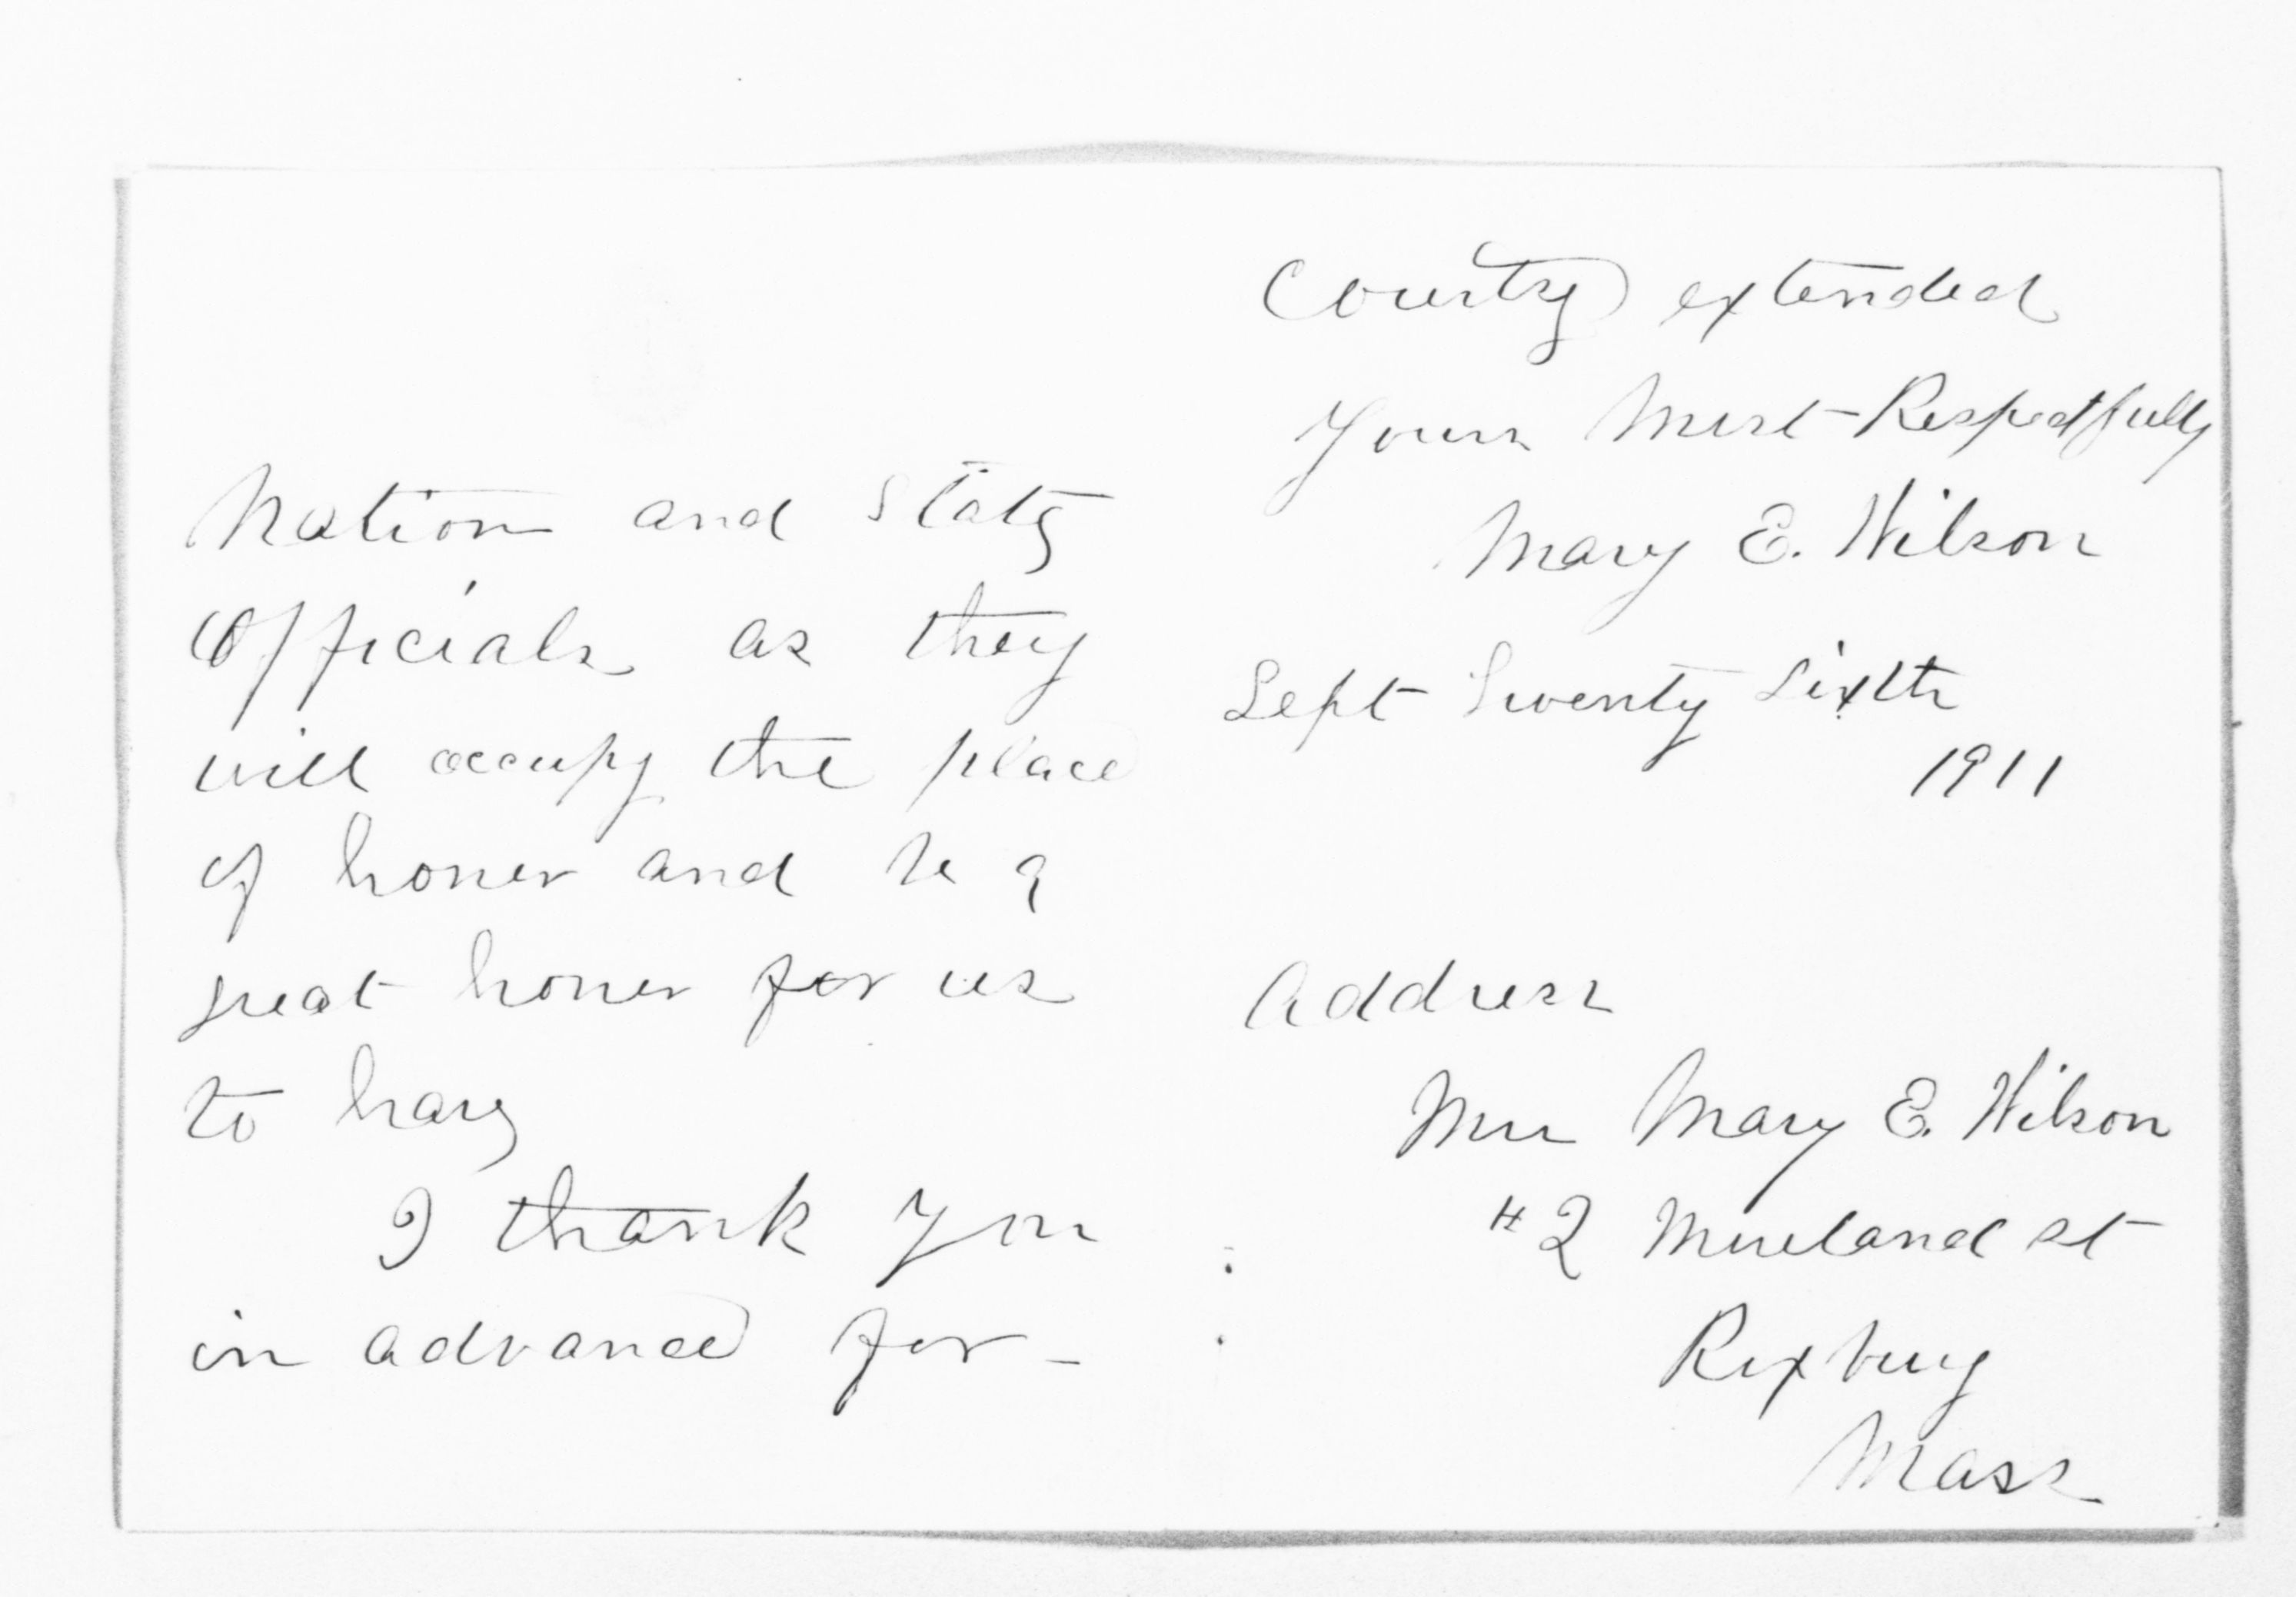 Nation and State
Officials as they
will occupy the place
of honer and be a
great honer for us
to have
I thank you
in advance for -
Courtsy extended
Yours Most Respectfully
Mary E. Wilson
Sept Twenty Sixth
1911
Address
Mrs Mary E. Wilson
#2 Moreland st
Roxbury
Mass